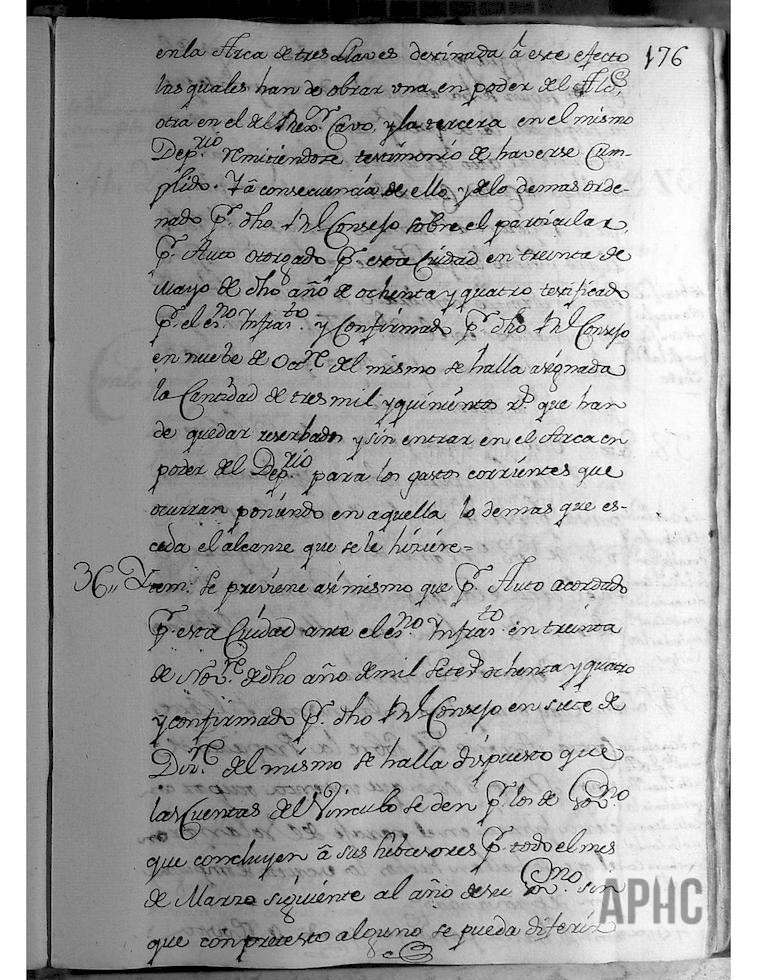 176
en la Arca de tres Llaves destinada â este efecto
las quales han de obrar vna en poder del Alc.e,
otra en el del Rex.r Cavo, y la tercera en el mismo
Dep.rio remitiendose testimonio de haverse Cum-
plido. Y â consecuencia de ello, y de lo demas orde-
nado p.r dho R.l Consejo sobre el particular,
p.r Auto otorgado p.r esta Ciudad en treinta de
Mayo de dho año de ochenta y quatro testificado
p.r el es.no Infras.to y Confirmado p.r dho R.l Consejo
en nuebe de Oct.re del mismo se halla asignada
la Cantidad de tres mil y quinientos r.s que han
de quedar reserbados y sin entrar en el Arca en
poder del Dep.rio para los gastos corrientes que
ocurran poniendo en aquella lo demas que es-
ceda el alcanze que se le hiziere=
36,, Ytem: Se previene asi mismo que p.r Auto acordado
p.r esta Ciudad ante el es.no Infras.to en treinta
de Nov.re de dho año de mil Setec.s ochenta y quatro
y confirmado p.r dho R.l Consejo en siete de
Diz.re del mismo se halla dispuesto que
las Cuentas del Vinculo se den p.r los de Gov.no
que concluyen â sus subcesores p.r todo el mes
de Marzo siguiente al año de su Gov.no sin
que con pretesto alguno se pueda diferir
APHC